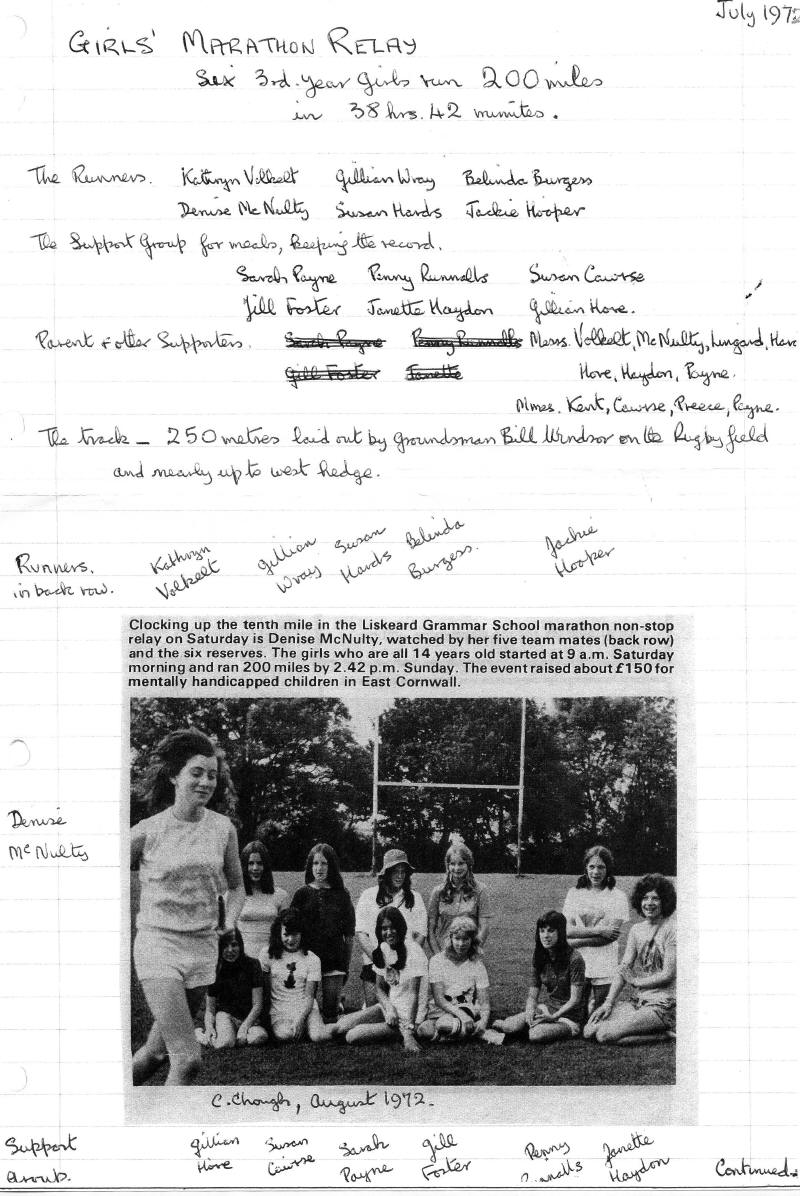 July 197
GIRLS' MARATHON RELAY
Six 3rd. Year Girls run 200 miles
in 38 hrs. 42 minutes.
The Runners. Kathryn Volkelt Gillian Wray Belinda Burgess
Denise McNulty Susan Hards Jackie Hooper
The Support Group for meals, keeping the record.
Sarah Payne Penny Runnalls Susan Cawrse
Jill Foster Janette Haydon Gillian Hore.
Parent & other Supporters. Sarah Payne Penny Runnalls Messs. Volkelt, McNulty, Lungard, Hare
Gill Foster Janette Hore, Haydon, Payne.
Mmes. Kent, Cawrse, Preece, Payne.
The track – 250 metres laid out by groundsman Bill Windsor on the Rugby field
and nearly up to west hedge.
Runners. Kathryn Gillian Susan Belinda Jackie
in back row. Volkelt Wray Hards Burgess. Hooper
Clocking up the tenth mile in the Liskeard Grammar School marathon non-stop
relay on Saturday is Denise McNulty, watched by her five team mates (back row)
and the six reserves. The girls who are all 14 years old started at 9 a.m. Saturday
morning and ran 200 miles by 2.42 p.m. Sunday. The event raised about £150 for
mentally handicapped children in East Cornwall.
Denise
McNulty
C. Chough, August 1972.
Support Gillian Susan Sarah Gill Penny Janette
Group. Hore Cawrse Payne Foster Runnalls Haydon Continued.